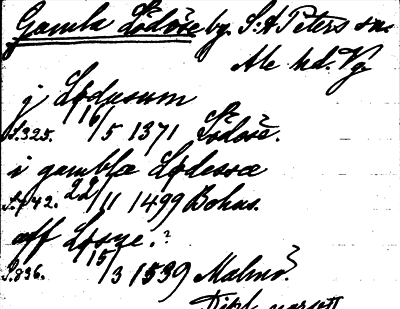 Gamla Lödöse by. S:t Peters sn.
Ale hd. Vg
j Lødusum
S. 325. 16/5 1371 Lödöse.
i gamblæ Lødesæ
S. 742. 22/11 1499 Bohus.
aff Løsze.?
S. 836. 15/3 1539 Malmö.